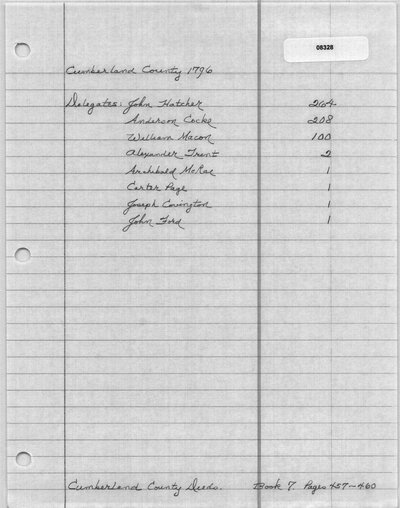 08328
Cumberland County 1796
Delegates: John Hatcher 264
Anderson Cocke 208
William Macon 100
Alexander Trent 2
Archibald McRae 1
Carter Page 1
Joseph Covington 1
John Ford 1
Cumberland County Deeds. Book 7. Pages 457~460